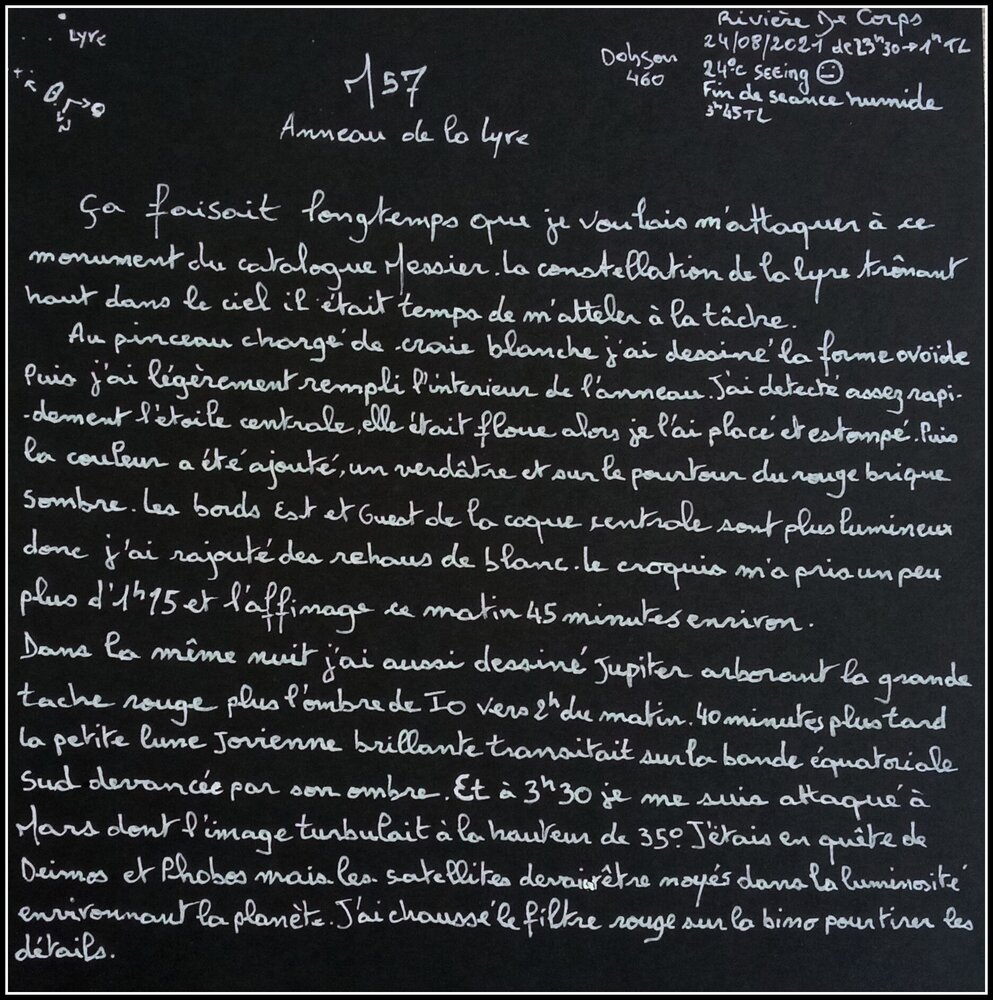 Lyre
Rivière De Corps
24/08/2021 de 23h30→1h TL
Dobson
460
24°C seeing
Fin de seance humide
3h45TL
N
M57
Anneau de la Lyre
Ça faisait longtemps que je voulais m'attaquer à ce
monument du catalogue Messier. La constellation de la lyre trônant
haut dans le ciel il était temps de m'atteler à la tâche.
Au pinceau chargé de craie blanche j'ai dessiné la forme ovoïde
Puis j'ai légèrement rempli l'interieur de l'anneau. J'ai detecté assez rapi-
-dement l'étoile centrale, elle était floue alors je l'ai placé et estompé. Puis
la couleur a été ajouté, un verdâtre et sur le pourtour du rouge brique
sombre. Les bords Est et Ouest de la coque centrale sont plus lumineux
donc j'ai rajouté des rehaus de blanc. Le croquis m'a pris un peu
plus d'1h15 et l'affinage ce matin 45 minutes environ.
Dans la même nuit j'ai aussi dessiné Jupiter arborant la grande
tache rouge plus l'ombre de Io vers 2h du matin. 40 minutes plus tard
la petite lune Jovienne brillante transitait sur la bande équatoriale
Sud devancée par son ombre. Et à 3h30 je me suis attaqué à
Mars dont l'image turbulait à la hauteur de 35° J'étais en quête de
Deimos et Phobos mais les satellites devaient être noyés dans la luminosité
environnant la planète. J'ai chaussé le filtre rouge sur la bino pour tirer les
détails.